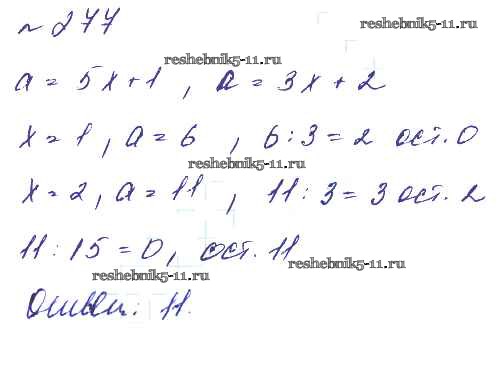 №277
reshebnik5-11.ru
a = 5x+1, a = 3x+2
x=1, a=6, 6:3=2 ост. 0
reshebnik5-11.ru
x=2, a=11, 11:3=3 ост. 2
11:15=0, ост. 11
reshebnik5-11.ru
reshebnik5-11.ru
Ответ: 11.